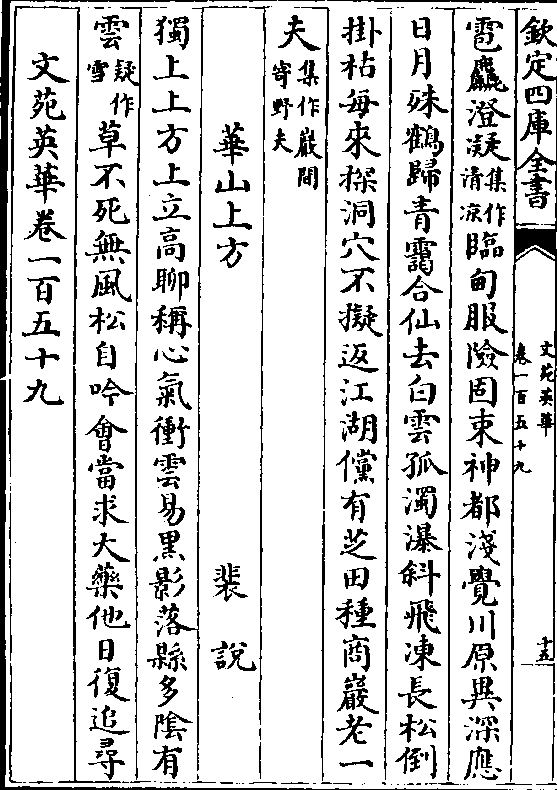 欽定四庫全書
文苑英華
卷一百五十九
十五
雹麤澄凝集作清凉臨甸服險固束神都淺覺川原異深應
日月殊鶴歸青靄合仙去白雲孤濁瀑斜飛凍長松倒
掛枯每來探洞穴不擬返江湖儻有芝田種商巖老一
夫集作巖間寄野夫
華山上方 裴説
獨上上方上立高聊稱心氣衝雲易黒影落縣多陰有
雲疑作雪草不死無風松自吟會當求大藥他日復追尋
文苑英華卷一百五十九